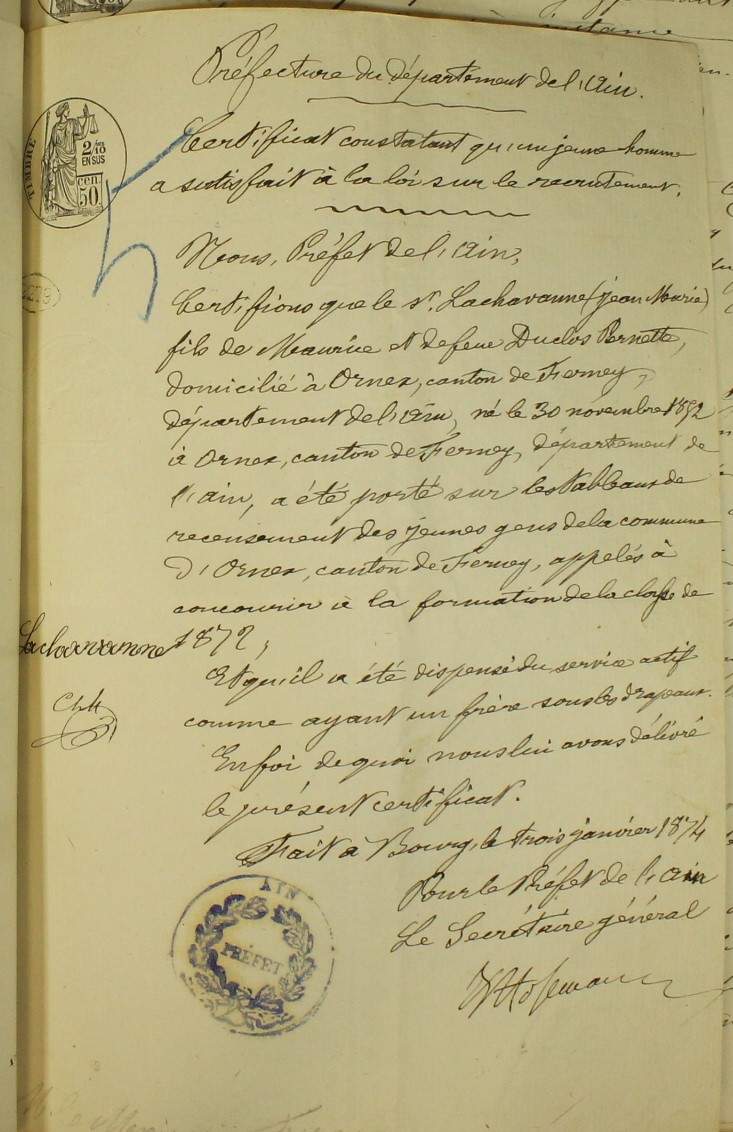 Préfecture du département de l'Ain.
TIMBRE
2/10
EN SUS
50 cen
Certificat constatant qu'un jeune homme
a satisfait à la loi sur le recrutement.
Nous, Préfet de l'Ain,
Certifions que le Sr. Lachavanne (jean Marie)
fils de Maurice et de feue Duclos Pernette,
domicilié à Ornex, canton de Ferney,
département de l'Ain, né le 30 novembre 1852
à Ornex, canton de Ferney, département de
l'ain, a été porté sur les tableaux de
recensement des jeunes gens de la commune
d'Ornex, canton de Ferney, appelés à
concourir à la formation de la classe de
1872,
Lachavanne
Et qu'il a été dispensé du service actif
comme ayant un frère sous les drapeaux.
En foi de quoi nous lui avons délivré
le présent certificat.
Fait à Bourg, le trois janvier 1874
Pour le Préfet de l'ain
Le Secrétaire général
AIN
PRÉFET